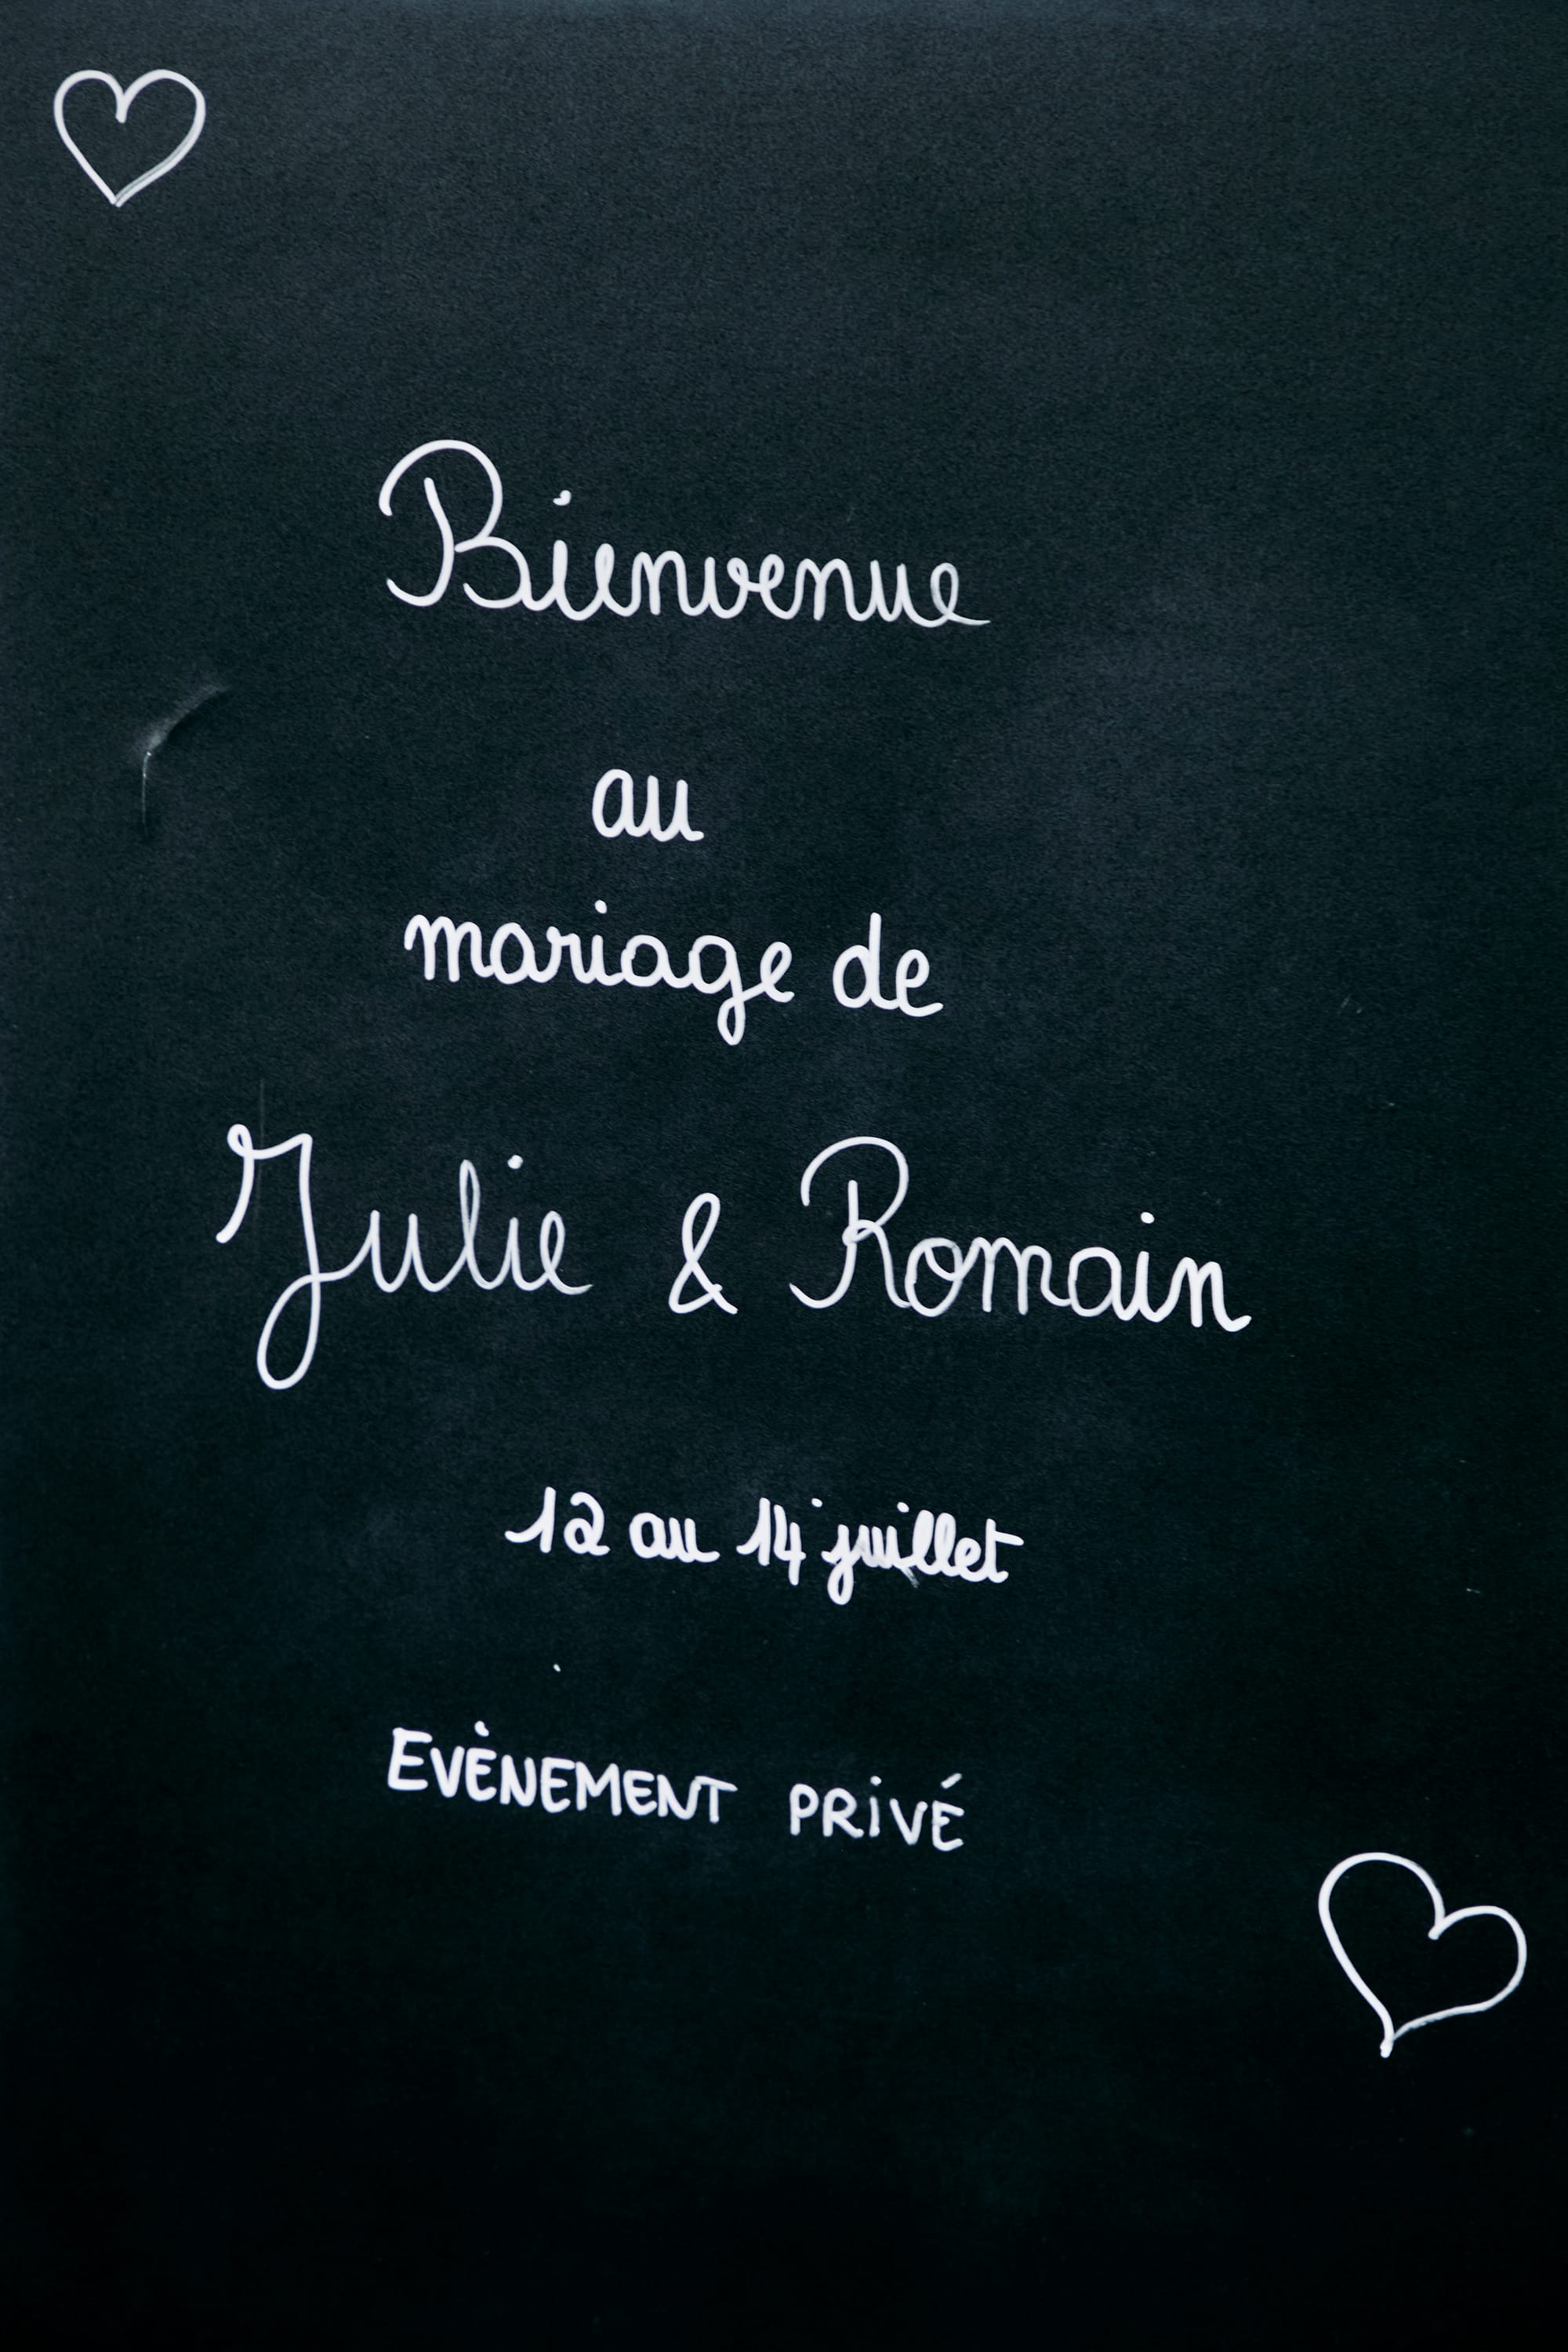 Bienvenue
au
mariage de
Julie & Romain
12 au 14 juillet
EVÈNEMENT PRIVÉ